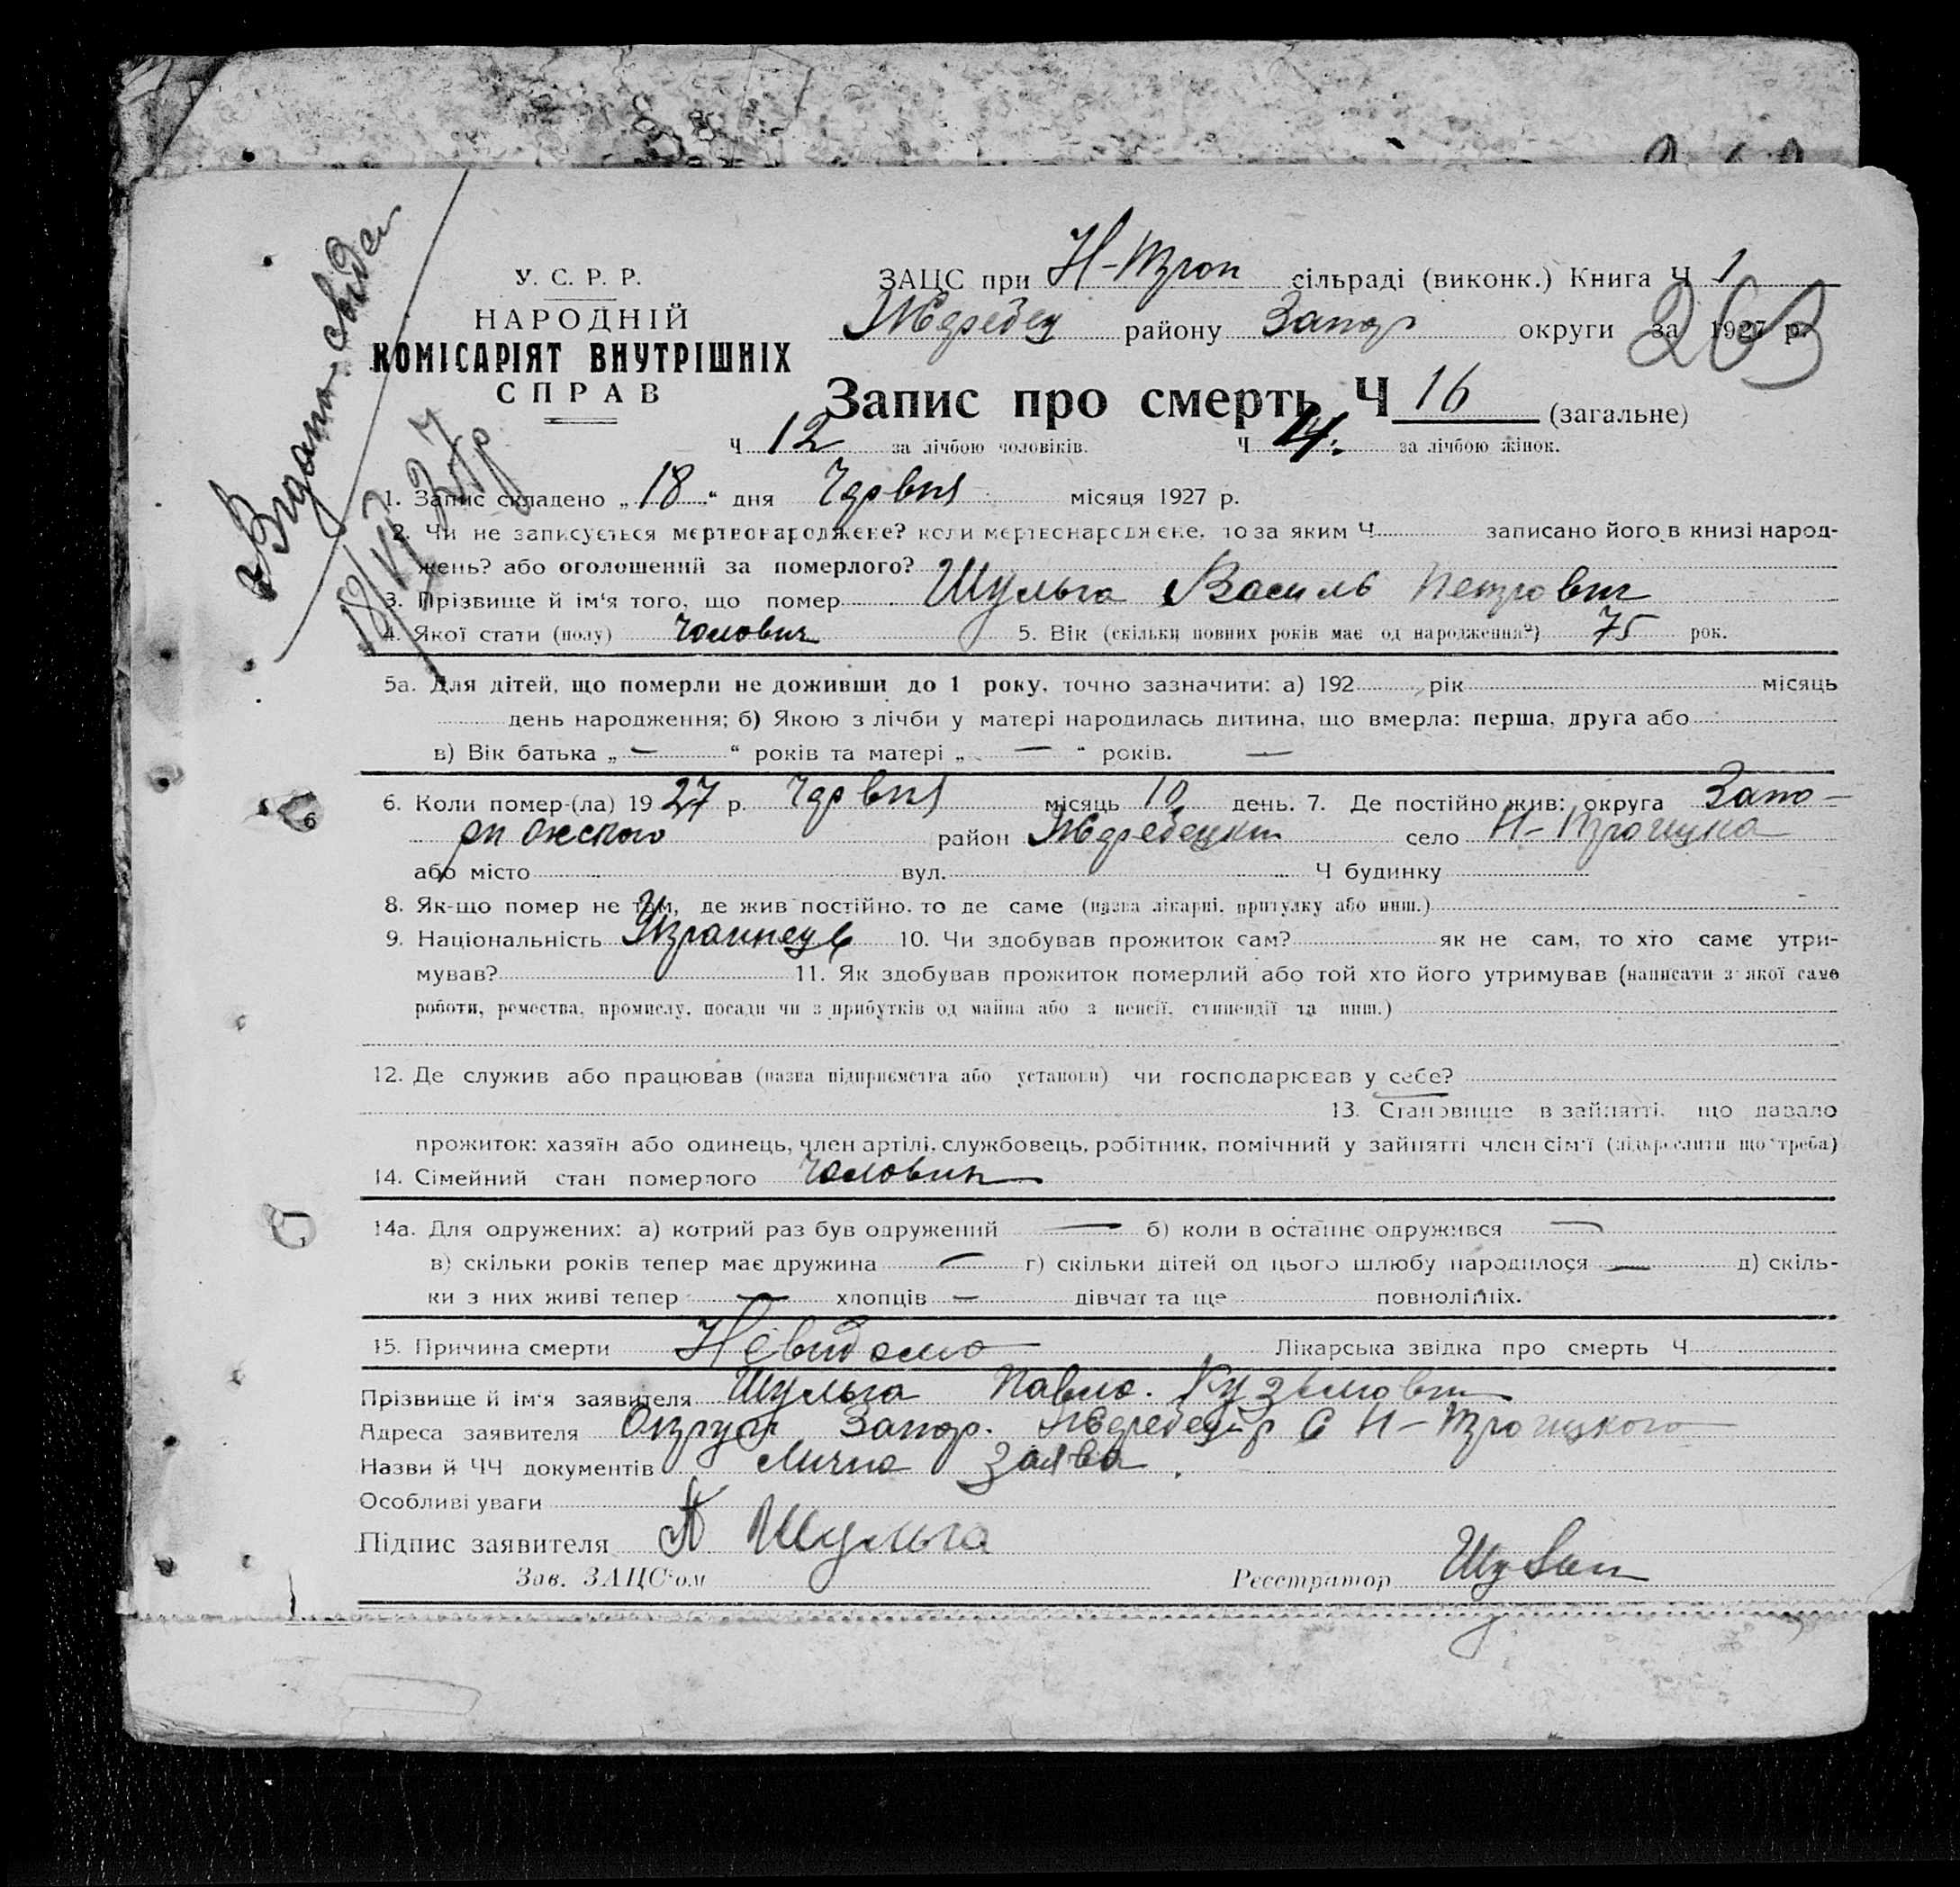 Видано свідец
18/VI 27 р
У. С. Р. Р.
НАРОДНІЙ
КОМІСАРІЯТ ВНУТРІШНІХ
СПРАВ
ЗАЦС при Н-Троп сільраді (виконк.) Книга Ч 1
Жеребец району Запор округи за 1927 р.
263
Запис про смерть Ч 16 (загальне)
Ч 12 за лічбою чоловіків. Ч 4. за лічбою жінок.
1. Запис складено „18“ дня Червня місяця 1927 р.
2. Чи не записується мертвонароджене? коли мертвонароджене, то за яким Ч записано його в книзі народ-
жень? або оголошений за померлого?
3. Прізвище й ім‘я того, що помер Шульга Василь Петрович
4. Якої стати (полу) Чолович 5. Вік (скільки повних років має од народження?) 75 рок.
5а. Для дітей, що померли не доживши до 1 року, точно зазначити: а) 192 рік місяць
день народження; б) Якою з лічби у матері народилась дитина, що вмерла: перша, друга або
в) Вік батька „ — “ років та матері „ — “ років. —
6. Коли помер-(ла) 1927 р. Червня місяць 10 день. 7. Де постійно жив: округа Запо-
ріжского район Жеребецкий село Н-Троицка
або місто вул. Ч будинку
8. Як-що помер не там, де жив постійно, то де саме (назва лікарні, притулку або инш.)
9. Національність Украинец 10. Чи здобував прожиток сам? як не сам, то хто саме утри-
мував? 11. Як здобував прожиток померлий або той хто його утримував (написати з якої саме
роботи, ремества, промислу, посади чи з прибутків од майна або з пенсії, стипендії та инш.)
12. Де служив або працював (назва підприємства або установи) чи господарював у себе?
13. Становище в зайнятті, що давало
прожиток: хазяїн або одинець, член артілі, службовець, робітник, помічний у зайнятті член сім‘ї (підкреслити що треба)
14. Сімейний стан померлого Чоловик
14а. Для одружених: а) котрий раз був одружений — б) коли в останнє одружився —
в) скільки років тепер має дружина — г) скільки дітей од цього шлюбу народилося — д) скіль-
ки з них живі тепер — хлопців — дівчат та ще повнолітніх.
15. Причина смерти Невидомо Лікарська звідка про смерть Ч
Прізвище й ім‘я заявителя Шульга Павло. Кузьмович
Адреса заявителя Округи Запор. Жеребец р С Н-Троицкого
Назви й ЧЧ документів Лична Заява.
Особливі уваги
Підпис заявителя П Шульга
Зав. ЗАЦС‘ом Реєстратор